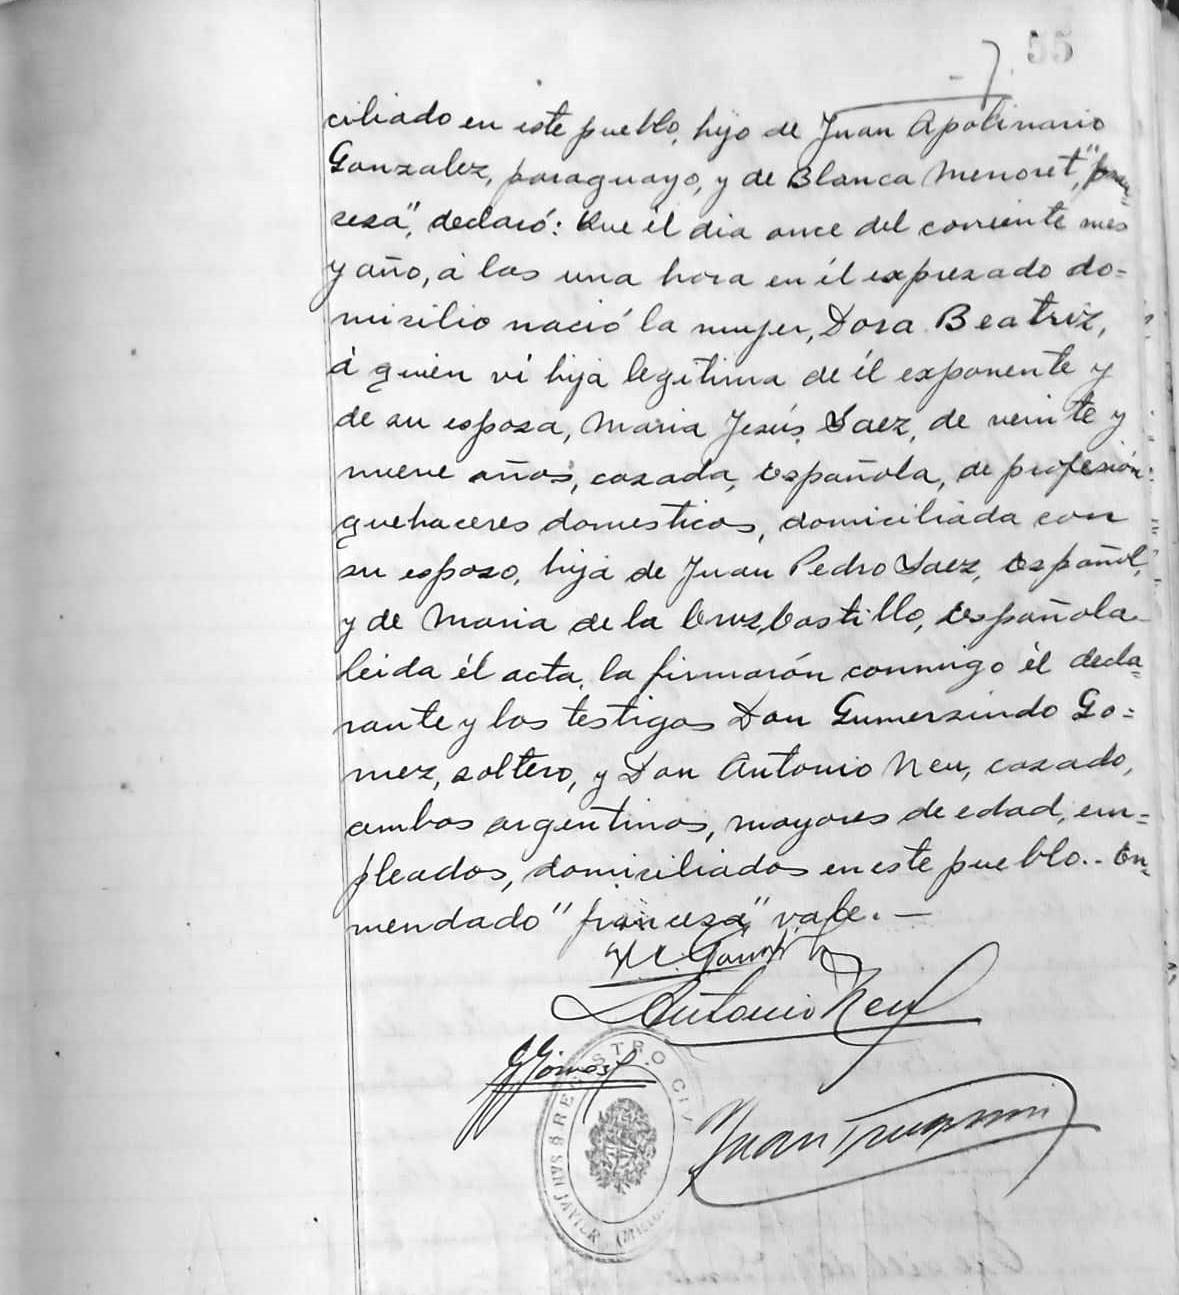 55
ciliado en este pueblo, hijo de Juan Apolinario
Gonzalez, paraguayo, y de Blanca Menoret, "fran=
sesa", declaró: Que él dia once del corriente mes
y año, á las una hora en él expresado do=
misilio nació la mujer, Dora Beatriz,
á quién ví hija legitima de él exponente y
de su esposa, Maria Jesús Saez, de veinte y
nueve años, casada, Española, de profesión
quehaceres domesticos, domiciliada con
su esposo, hija de Juan Pedro Saez, Español,
y de Maria de la Cruz Castillo, Española.
Leida él acta, la firmarón conmigo él decla=
rante y los testigos Don Gumersindo Go=
mez, soltero, y Don Antonio Neu, casado,
ambos argentinos, mayores de edad, em=
pleados, domiciliados en este pueblo.- En=
mendado "francesa" vale.-
Antonio Neu
GGómez
REGISTRO CIV
SAN JAVIER (MISIO
Juan